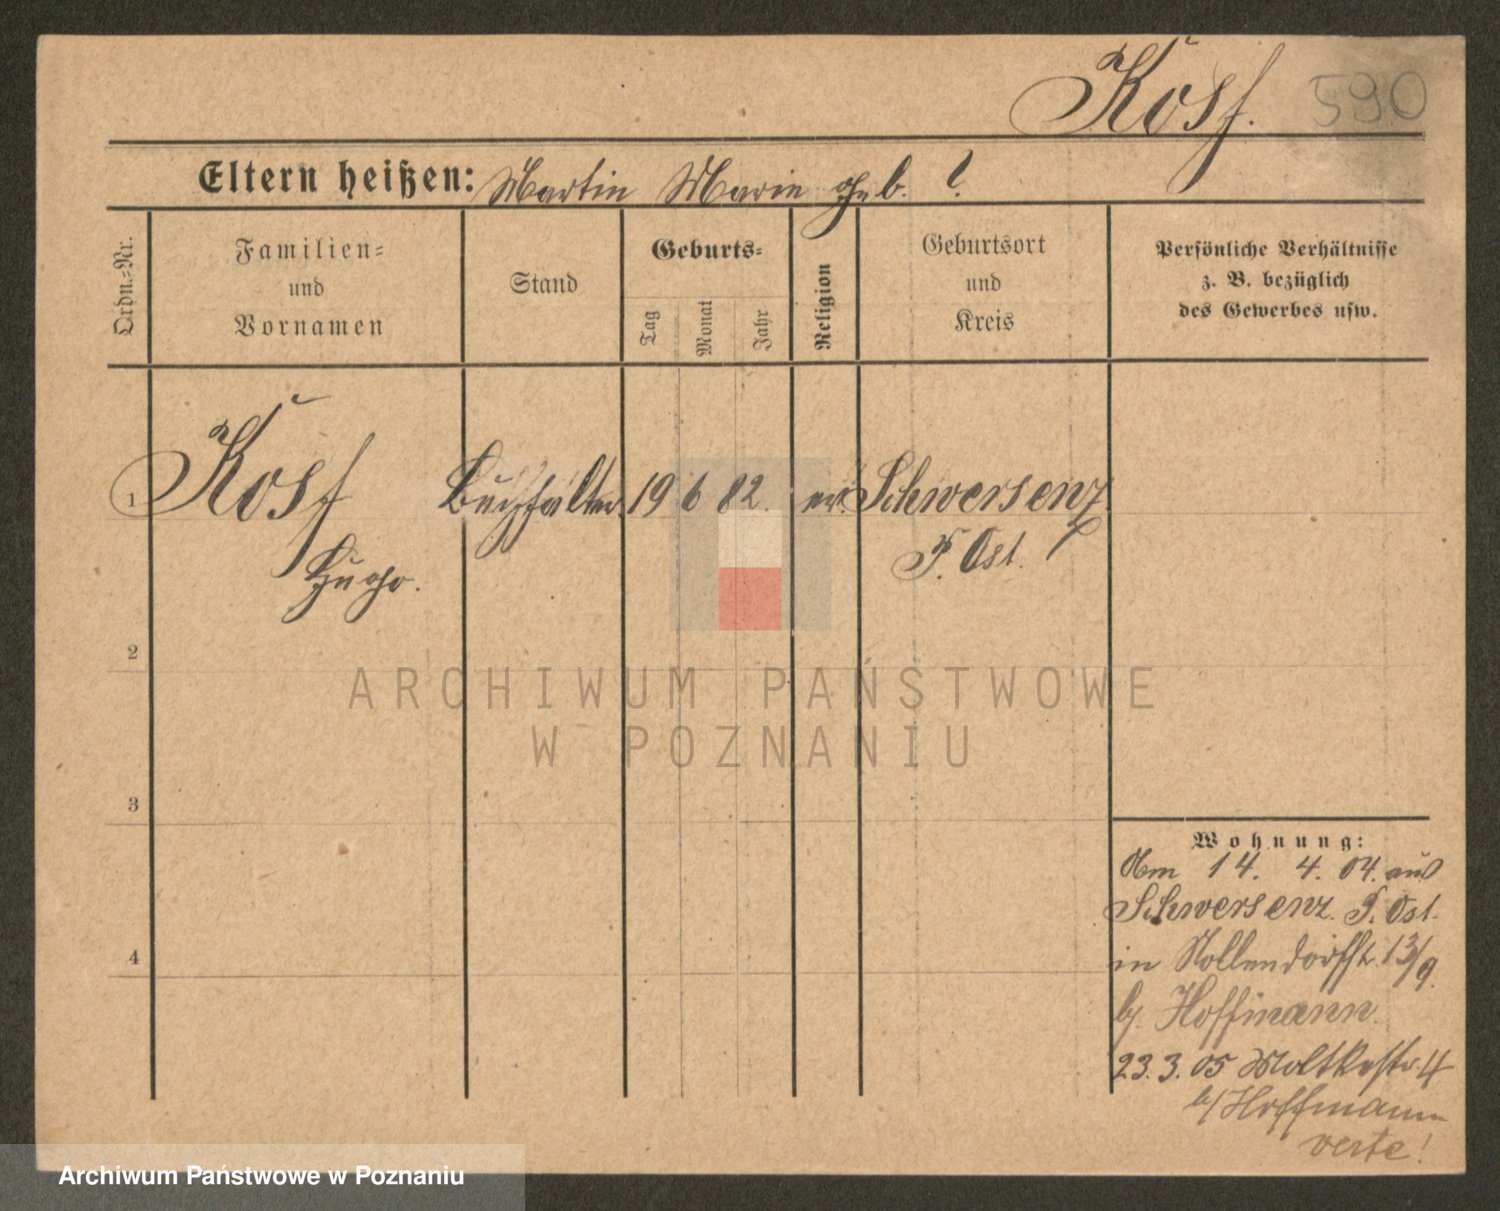 Kost. 590
Eltern heißen: Martin Marie geb. ?
Ordn.-Nr.
Familien-
und
Vornamen
Stand
Geburts-
Tag
Monat
Jahr
Religion
Geburtsort
und
Kreis
Persönliche Verhältnisse
z. B. bezüglich
des Gewerbes usw.
1 Kost Buchhalter 19 6 82. ev. Schwersenz
Hugo. P. Ost.
2
ARCHIWUM PAŃSTWOWE
W POZNANIU
3
4
Wohnung:
Am 14. 4. 04. aus
Schwersenz. P. Ost.
in Nollendorfstr. 13/9.
b/ Hoffmann.
23. 3. 05 Moltkestr. 4
b/ Hoffmann
verte!
Archiwum Państwowe w Poznaniu